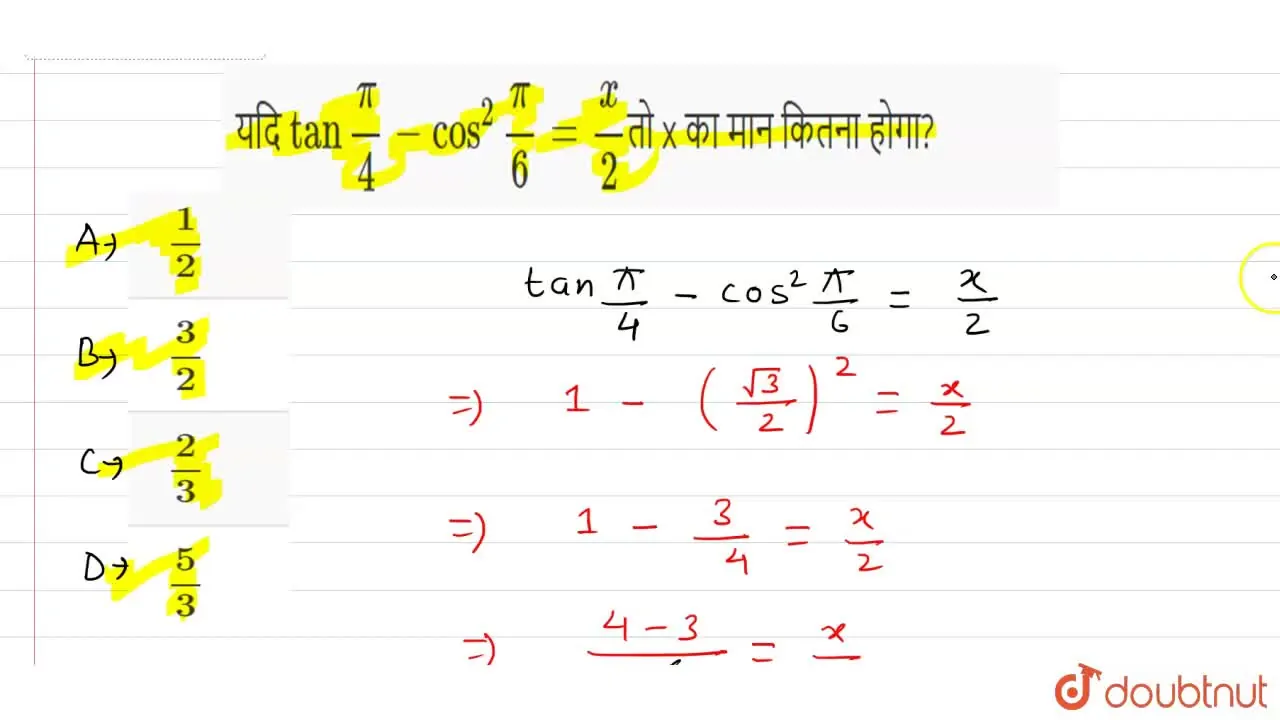 यदि tan π/4 − cos² π/6 = x/2 तो x का मान कितना होगा?
A→ 1/2
B→ 3/2
C→ 2/3
D→ 5/3
tan π/4 − cos² π/6 = x/2
⇒ 1 − (√3/2)² = x/2
⇒ 1 − 3/4 = x/2
⇒ 4 − 3 = x
doubtnut